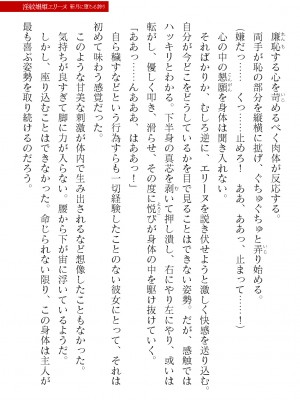 廉恥する心を苛めるべく肉体が反応する。
両手が恥の部分を縦横に拡げ、ぐちゅぐちゅと弄り始める。
（嫌だっ……くっ……止めろ！　ああ、ああっ、止まって……！）
心の中の懇願を身体は聞き入れない。
そればかりか、むしろ逆に、エリーヌを説き伏せようと激しく快感を送り込む。
自分が今どこをどうしているかを目で見ることはできない姿勢。だが、感触では
ハッキリとわかる。下半身の真芯を剥いて押し潰し、右にやり左にやり、或いは
転がし、優しく叩き、滑らせ、その度に悦びが身体の中を駆け抜けていく。
「ああっ……んああっ、はああっ！」
自ら穢すなどという行為すらも一切経験したことのない彼女にとって、それは
初めて味わう感覚だった。
このような甘美な刺激が体内で生み出されるなど想像したこともなかった。
気持ちが良すぎて脚に力が入らない。腰から下が宙に浮いているようだ。
しかし、座り込むことはできなかった。命じられない限り、この身体は主人が
最も喜ぶ姿勢を取り続けるのだろう。